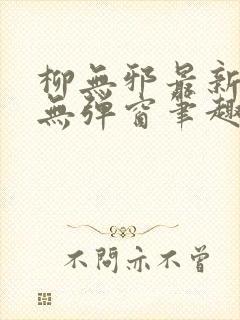 柳無邪最新
無彈窗筆趣
不問亦不曾